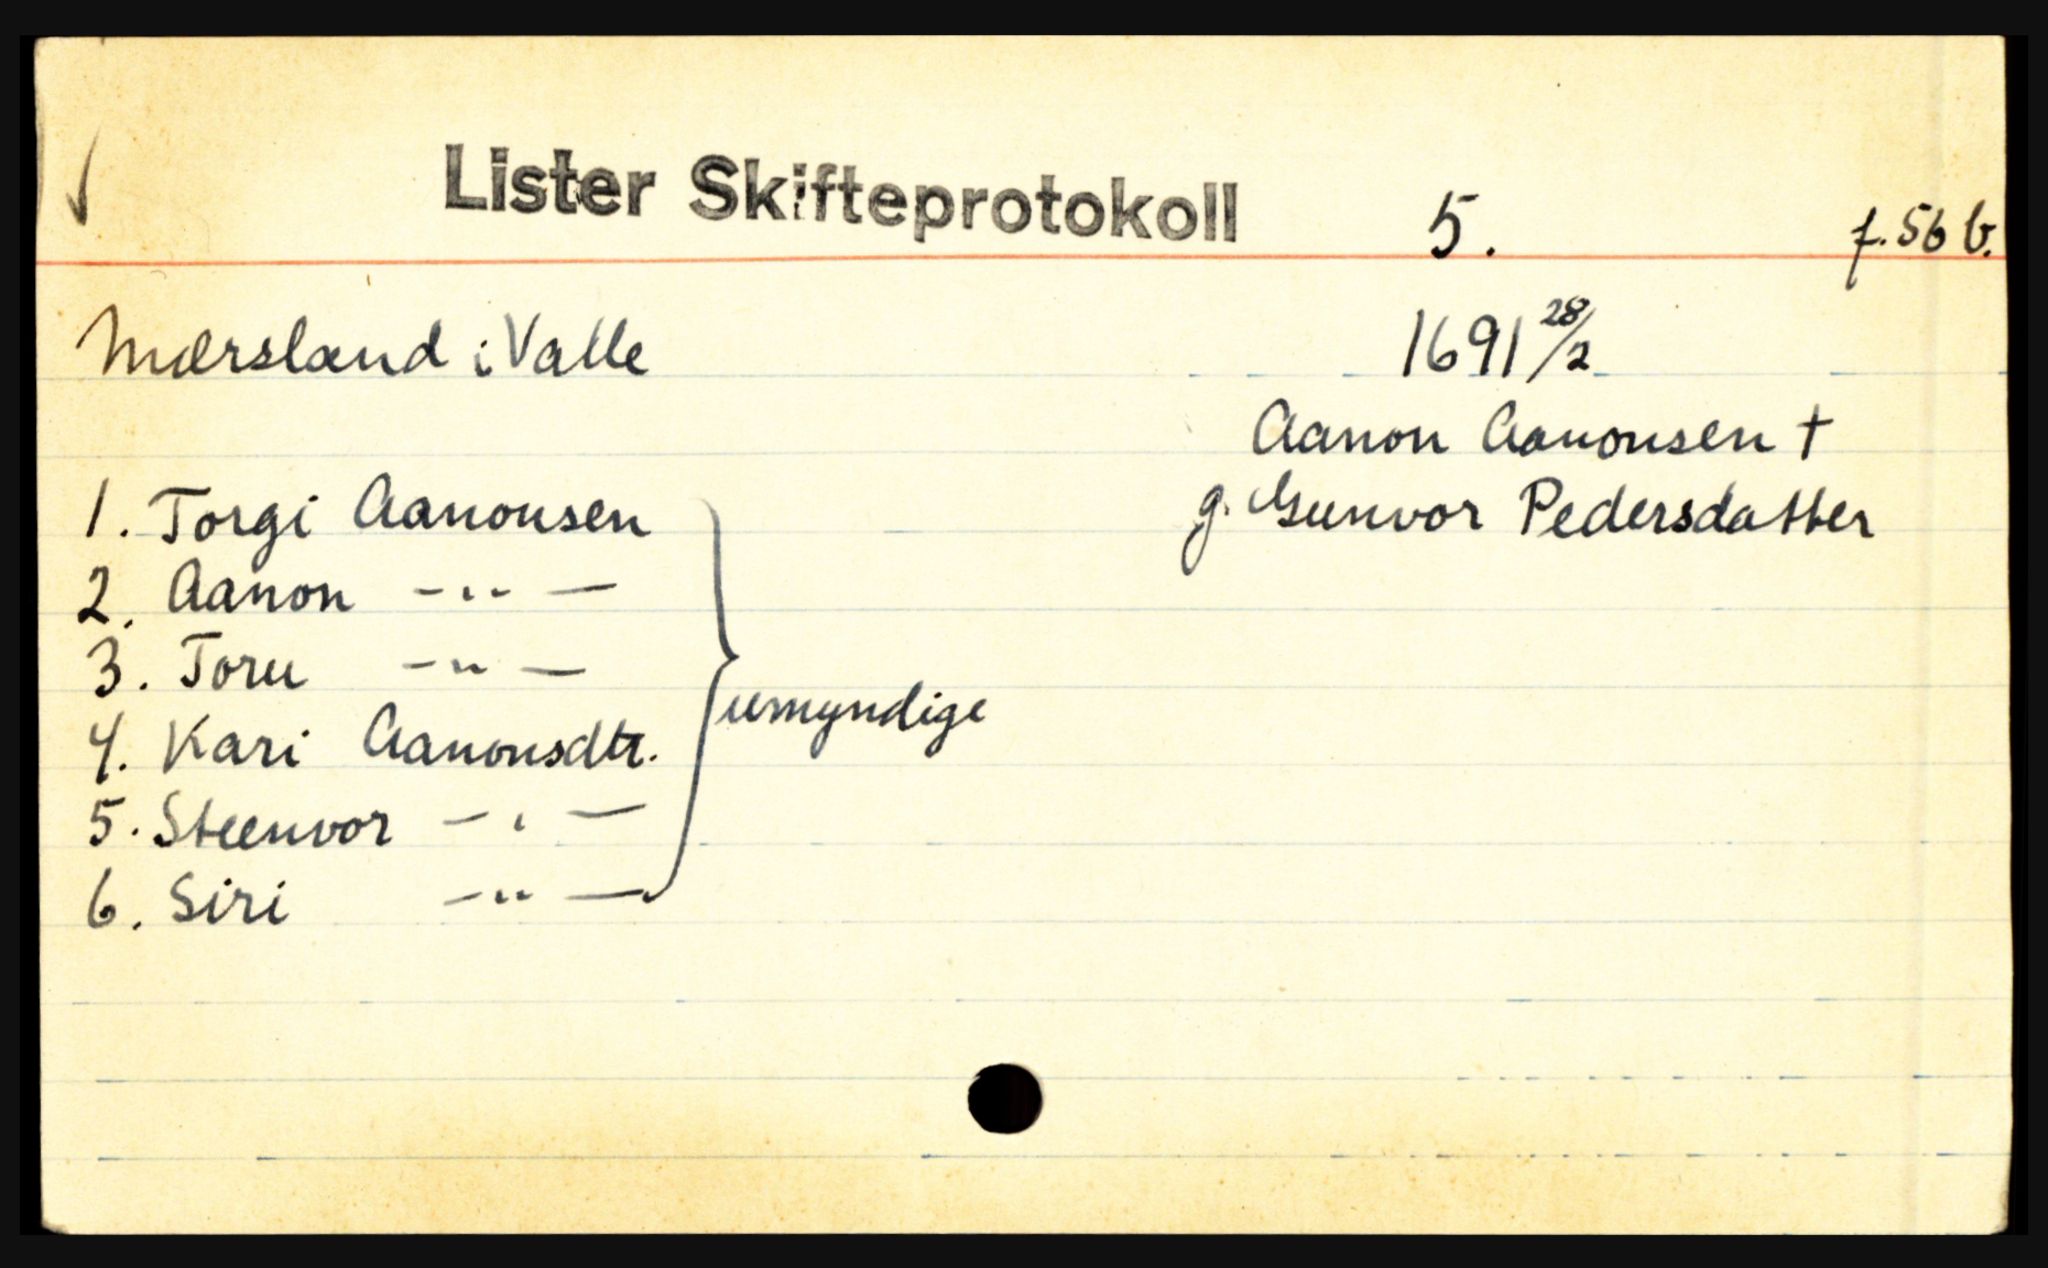 Lister Skifteprotokoll 5. f. 56 b.
Mærsland i Valle 1691 28/2
Aanon Aanonsen †
g. Gunvor Pedersdatter
1. Torgi Aanonsen
2. Aanon -„-
3. Toru -„-
4. Kari Aanonsdtr.
5. Steenvor -„-
6. Siri -„-
umyndige